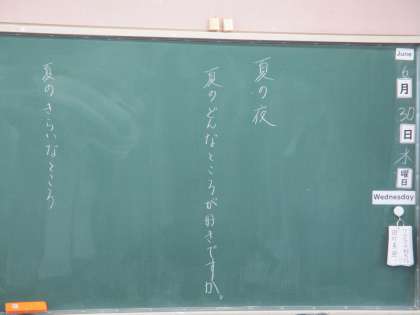 夏の夜
夏のどんなところが好きですか。
夏のきらいなところ
June
6
月
30
日
水
曜日
Wednesday